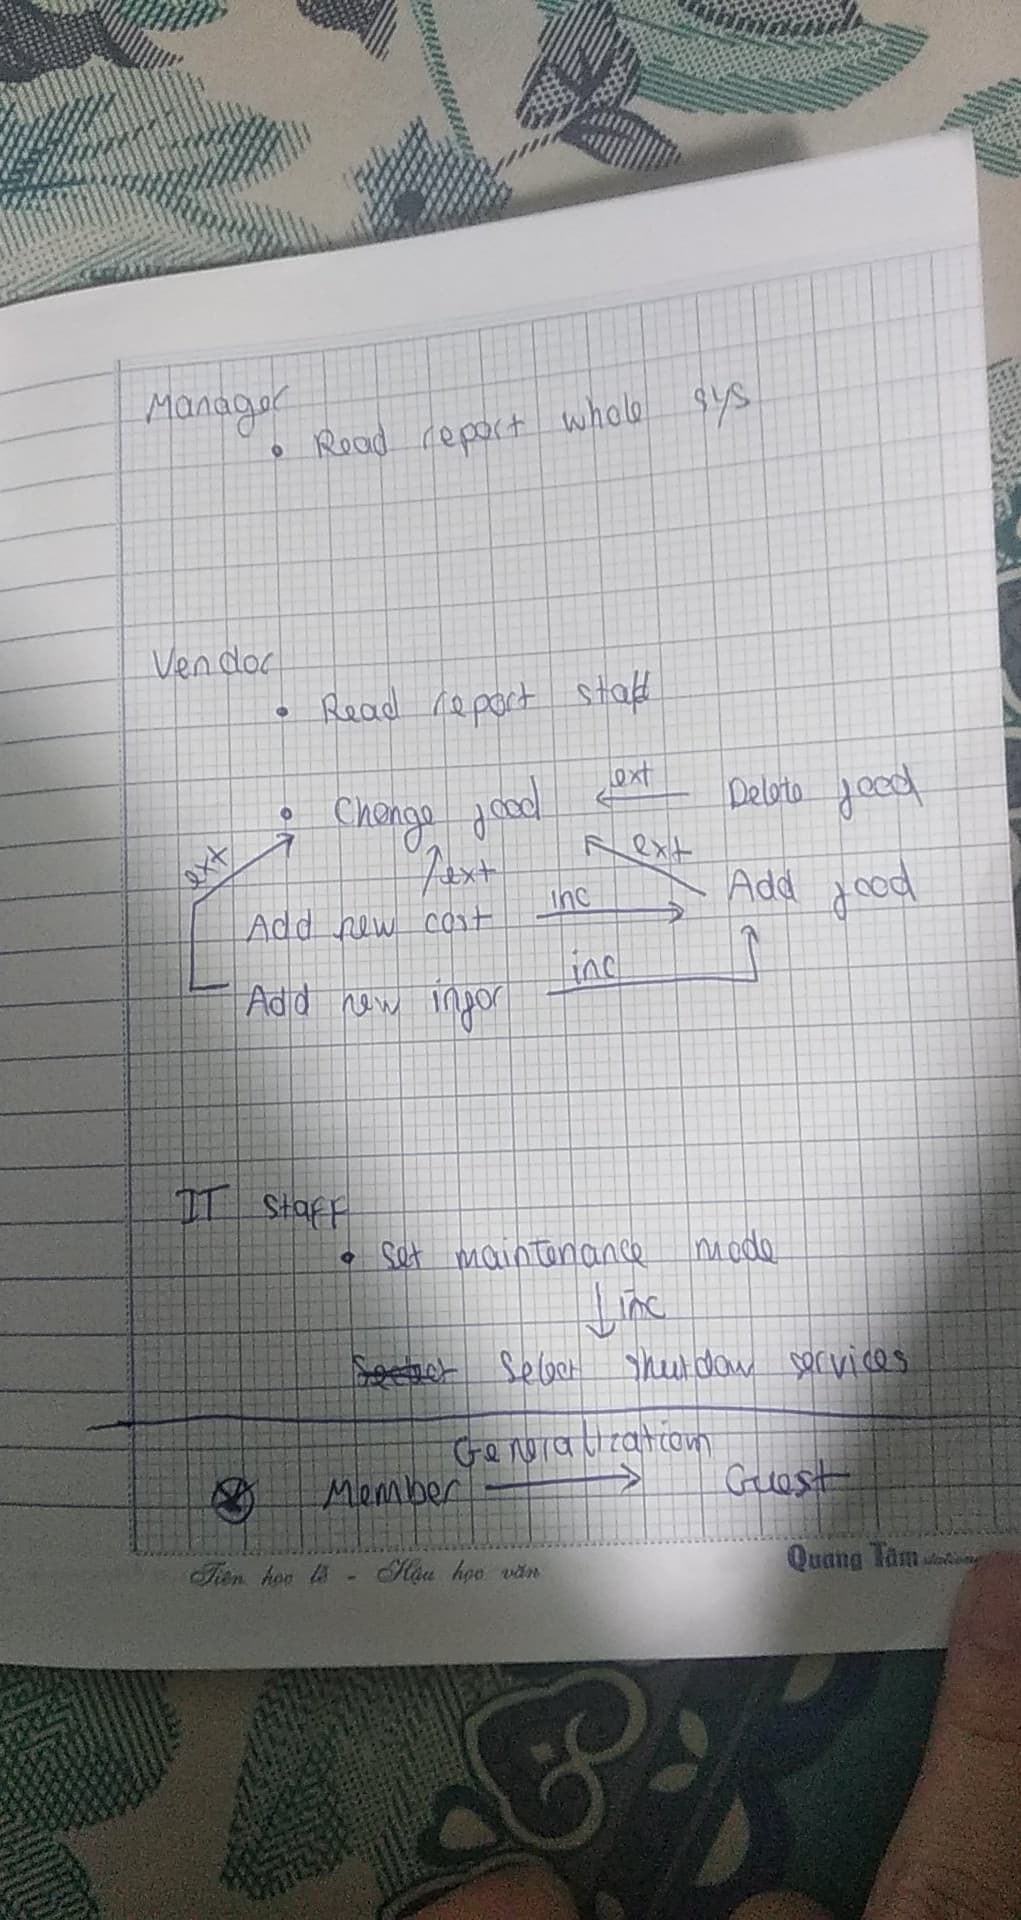 Manager
• Read report whole sys
Vendor
• Read report staff
• Change food ext Delete food
ext ext ext Add food
Add new cost inc
Add new inger inc
IT staff
• Set maintenance mode
inc
Select shutdow services
Generalization
Member Guest
Tiên học lễ - Hậu học văn
Quang Tâm